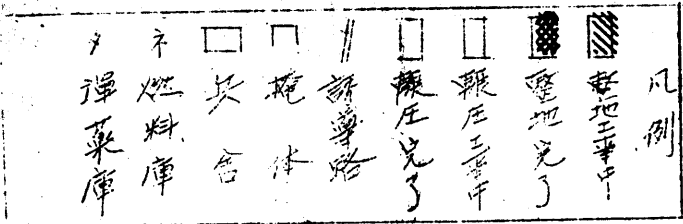 凡例
整地工事中
整地完了
輾圧工事中
輾圧完了
誘導路
掩体
兵舎
ネ 燃料庫
タ 弾薬庫